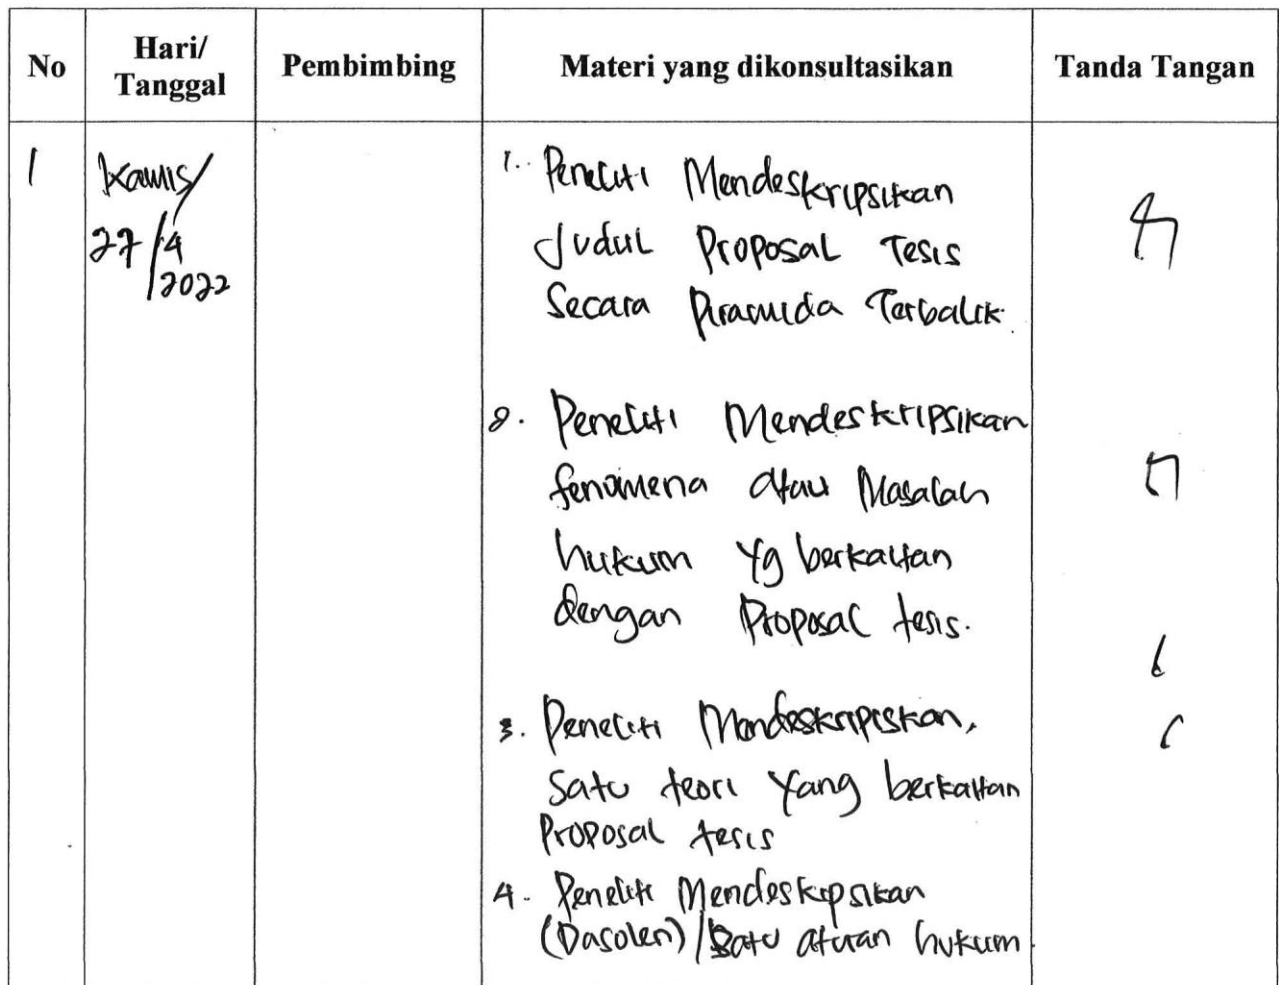 No
Hari/
Tanggal
Pembimbing
Materi yang dikonsultasikan
Tanda Tangan
1
Kamis/
27/4
2022
1. Peneliti Mendeskripsikan
Judul Proposal Tesis
Secara Piramida Terbalik.
2. Peneliti Mendeskripsikan
fenomena atau Masalah
hukum yg berkaitan
dengan Proposal tesis.
3. Peneliti Mendeskripiskan,
Satu teori Yang berkaitan
Proposal tesis
4. Peneliti Mendeskipsikan
(Dasolen)/Satu aturan hukum